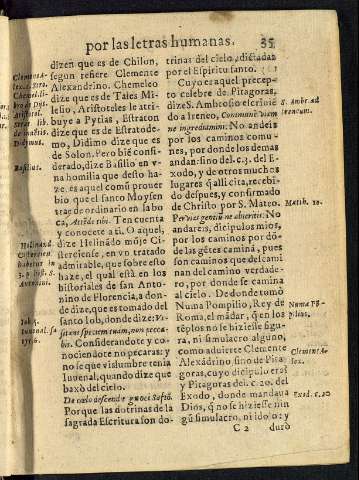 por las letras humanas. 35
dizen que es de Chilon,
segun refiere Clemente
Alexandrino. Chemeleo
dize que es de Tales Mi
lesio, Aristoteles le atri
buye a Pytias, Estraton
dize que es de Estratode-
mo, Didimo dize que es
de Solon. Pero bié consi-
derado, dize Basilio en v-
na homilia que desto ha-
ze, es aquel comũ prouer
bio que el santo Moysen
trae de ordinario en la bo
ca, Attẽde tibi. Ten cuenta
y conocete a ti. O aquel,
dize Helinãdo mõje Ci-
sterciense, en vn tratado
admirable, que sobre esto
haze, el qual està en los
historiales de san Anto-
nino de Florencia, a don-
de dize, que es tomado del
santo Iob, donde dize: Vi-
sitans speciem tuam, non pecca-
bis. Considerandote y co-
nociendote no pecaras: y
no se que vislumbre tenia
Iuuenal, quando dize que
baxò del cielo.
De cœlo descendit gnoti Seaftõ.
Porque las dotrinas de la
sagrada Escritura son do-
Basilius.
Helinand.
Iob 5.
trinas del cielo, dictadas
por el Espiritu santo.
Cuyo es aquel precep-
to celebre de Pitagoras,
dize S. Ambrosio escriuié
do a Ireneo, Communẽ viam
ne ingrediamini. No andeis
por los caminos comu-
nes, por donde los demas
andan: sino del c.3. del E-
xodo, y de otros muchos
lugares q̃ alli cita, recebi-
do despues, y confirmado
de Christo por S. Mateo.
Per vias gentiũ ne abieritis: No
andareis, dicipulos mios,
por los caminos por dõ-
de las gẽtes camina, pues
son caminos que descami
nan del camino verdade-
ro, por donde se camina
al cielo. De donde tomò
Numa Pompilio, Rey de
Roma, el mãdar, q̃ en los
tẽplos no se hiziesse figu-
ra, ni simulacro alguno,
como aduierte Clemente
Alexãdrino, sino de Pita
goras, cuyo dicipulo era?
y Pitagoras del c. 20. del
Exodo, donde mandaua
Dios, q̃ no se hiziesse nin
gũ simulacro, ni idolo: y
C 2 durò
S. Ambr. ad
Irencum.
Matth. 10.
Exod. c. 20